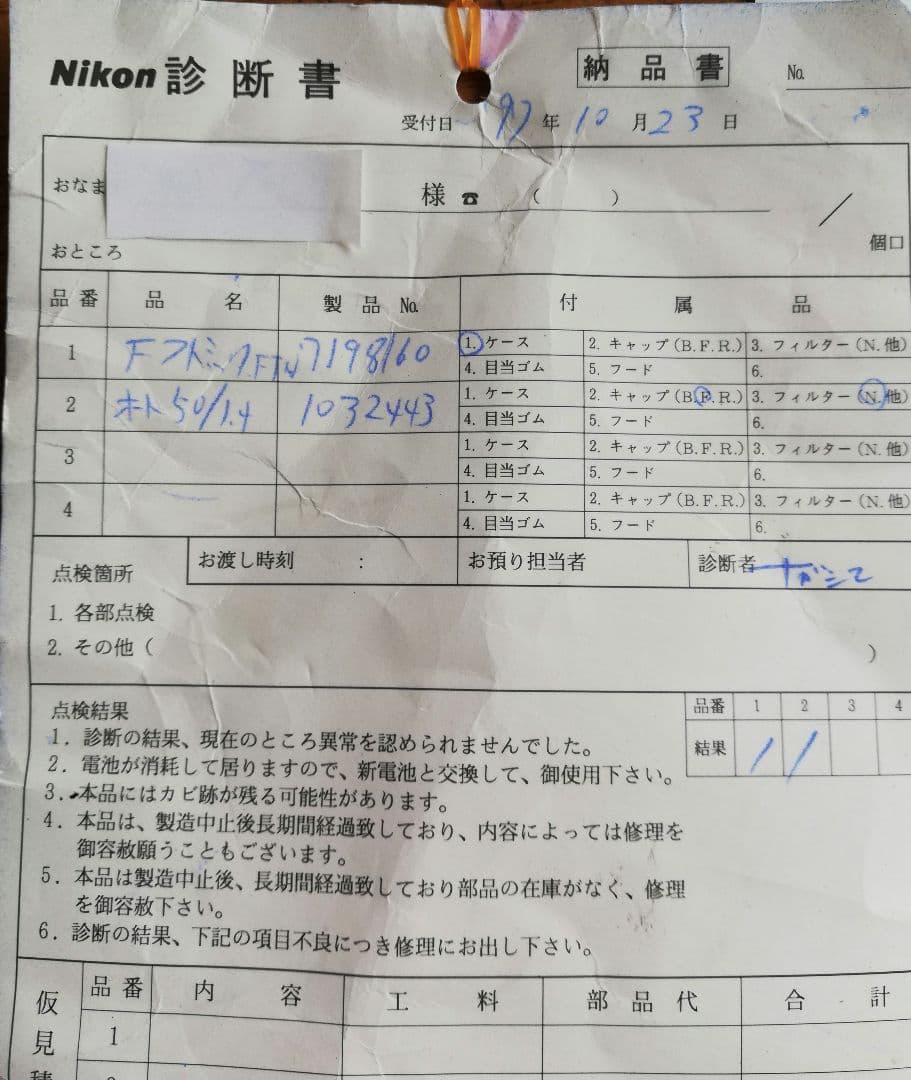 Nikon 診断書
納品書 No.
受付日 '97年10月23日
おなま
様 ☎ ( )
/
個口
おところ
品番 品名 製品No. 付属品
1 Fフォトミック.FTN 7198160 1. ケース 2. キャップ(B.F.R.) 3. フィルター(N.他)
4. 目当ゴム 5. フード 6.
2 オート50/1.4 1032443 1. ケース 2. キャップ(B.F.R.) 3. フィルター(N.他)
4. 目当ゴム 5. フード 6.
3 1. ケース 2. キャップ(B.F.R.) 3. フィルター(N.他)
4. 目当ゴム 5. フード 6.
4 1. ケース 2. キャップ(B.F.R.) 3. フィルター(N.他)
4. 目当ゴム 5. フード 6.
点検箇所 お渡し時刻 : お預り担当者 診断者
1. 各部点検
2. その他( )
点検結果
品番 1 2 3 4
結果 1 1
1. 診断の結果、現在のところ異常を認められませんでした。
2. 電池が消耗して居りますので、新電池と交換して、御使用下さい。
3. 本品にはカビ跡が残る可能性があります。
4. 本品は、製造中止後長期間経過致しており、内容によっては修理を
御容赦願うこともございます。
5. 本品は製造中止後、長期間経過致しており部品の在庫がなく、修理
を御容赦下さい。
6. 診断の結果、下記の項目不良につき修理にお出し下さい。
仮見積
品番 内容 工料 部品代 合計
1